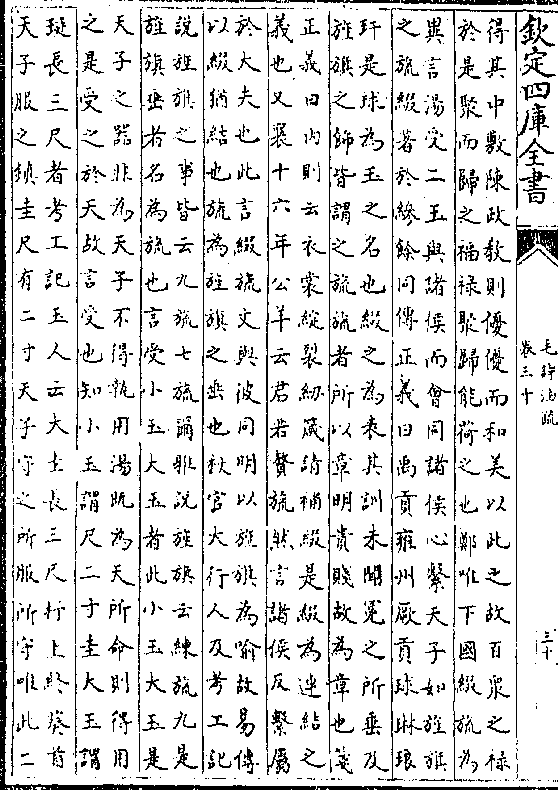 欽定四庫全書
毛詩注疏
卷三十
三十
得其中敷陳政教則優優而和美以此之故百衆之祿
於是聚而歸之福祿聚歸能荷之也鄭唯下國綴旒為
異言湯受二玉與諸侯而會同諸侯心繫天子如旌旗
之旒綴著於縿餘同傳正義曰禹貢雍州厥貢球琳琅
玕是球為玉之名也綴之為表其訓未聞冕之所垂及
旌旗之飾皆謂之旒旒者所以章明貴賤故為章也箋
正義曰内則云衣裳綻裂紉箴請補綴是綴為連結之
義也又襄十六年公羊云君若贅旒然言諸侯反繫屬
於大夫也此言綴旒文與彼同明以旌旗為喻故易傳
以綴猶結也旒為旌旗之垂也秋官大行人及考工記
說旌旗之事皆云九旒七旒爾雅說旌旗云練旒九是
旌旗垂者名為旒也言受小玉大玉者此小玉大玉是
天子之器非為天子不得執用湯既為天所命則得用
之是受之於天故言受也知小玉謂尺二寸圭大玉謂
珽長三尺者考工記玉人云大圭長三尺杼上終葵首
天子服之鎮圭尺有二寸天子守之所服所守唯此二